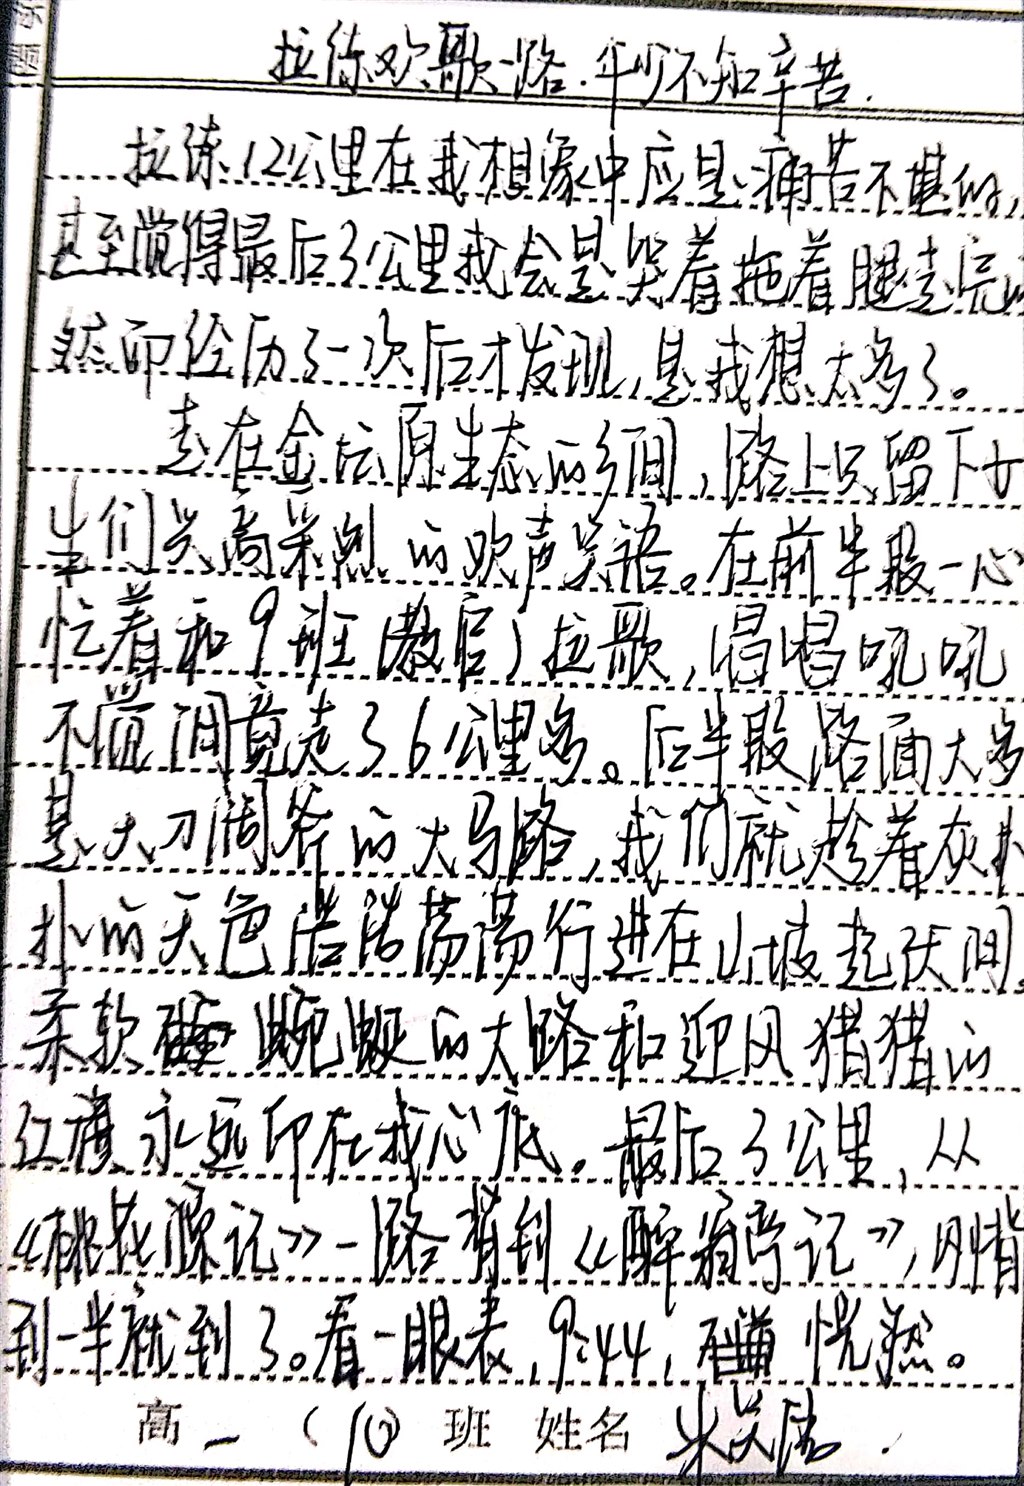 标题
拉练欢歌一路.年少不知辛苦.
拉练12公里在我想象中应是痛苦不堪的,
甚至觉得最后3公里我会是哭着拖着腿走完
然而经历了一次后才发现,是我想太多了。
走在金坛原生态的乡间,路上只留下女
生们兴高采烈的欢声笑语。在前半段一心
忙着和9班(教官)拉歌,唱唱吼吼
不觉间竟走了6公里多。后半段路面大多
是大刀阔斧的大马路,我们就趁着灰扑
扑的天色浩浩荡荡行进在山坡起伏间。
柔软 蜿蜒的大路和迎风猎猎的
红旗永远印在我心底。最后3公里,从
《桃花源记》一路背到《醉翁亭记》,刚背
到一半就到了。看一眼表,9:44, 恍然。
高一(10)班 姓名 朱